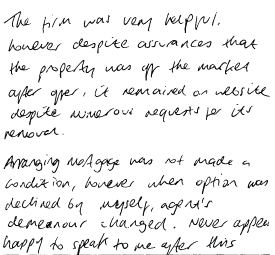 The firm was very helpful.
however despite assurances that
the property was off the market
after offer, it remained on website
despite numerous requests for its
removal.
Arranging Mortgage was not made a
condition, however when option was
declined by myself, agent's
demeanour changed. Never appea
happy to speak to me after this